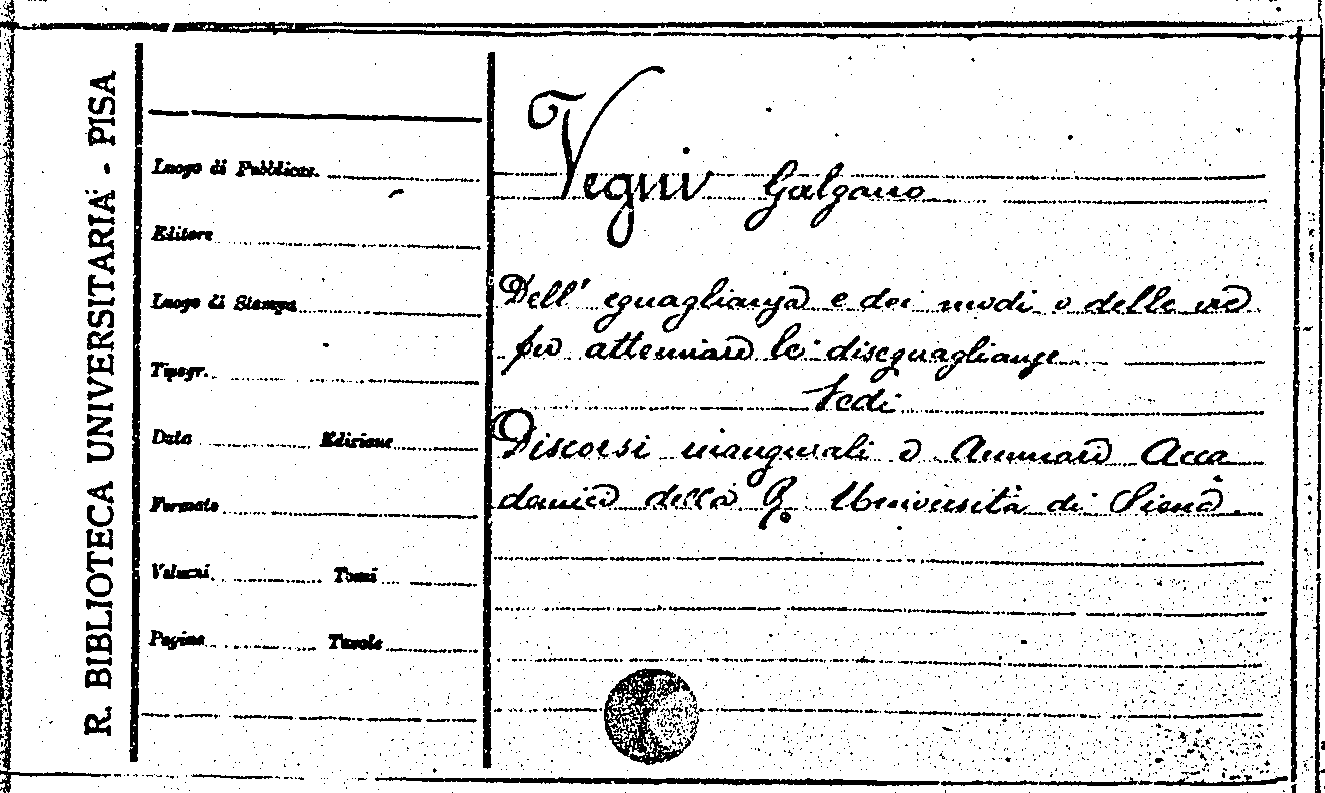 R. BIBLIOTECA UNIVERSITARIA - PISA
Luogo di Pubblicaz.
Editore
Luogo di Stampa
Tipogr.
Data Edizione
Formato
Volumi Tomi
Pagine Tavole
Vegni Galgano
Dell' eguaglianza e dei modi o delle vie
per attenuare le diseguaglianze
Vedi
Discorsi inaugurali e Annuario Acca
demico della R. Università di Siena.